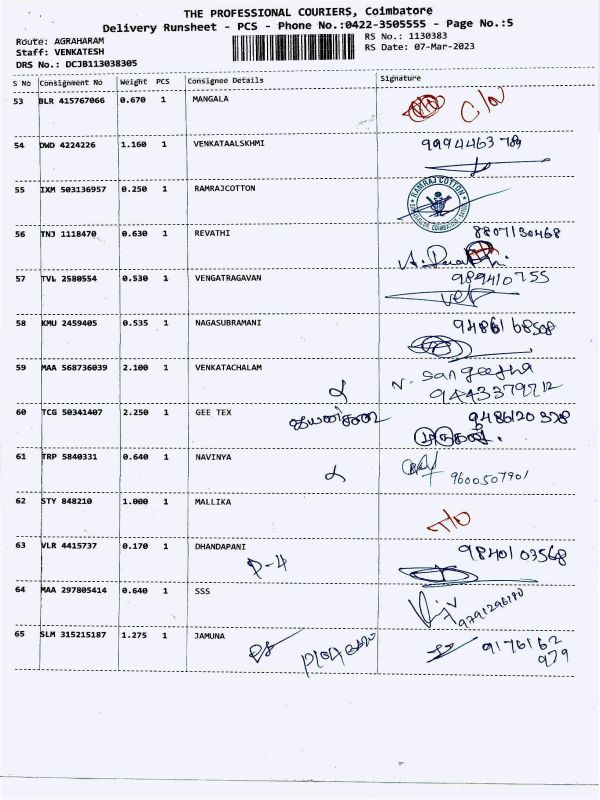 THE PROFESSIONAL COURIERS, Coimbatore
Delivery Runsheet - PCS - Phone No.:0422-3505555 - Page No.:5
Route: AGRAHARAM
Staff: VENKATESH
DRS No.: DCJB113038305
RS No.: 1130383
RS Date: 07-Mar-2023
S No Consignment No Weight PCS Consignee Details Signature
53 BLR 415767066 0.670 1 MANGALA
54 DWD 4224226 1.160 1 VENKATAALSKHMI
55 IXM 503136957 0.250 1 RAMRAJCOTTON RAMRAJ COTTON
56 TNJ 1118470 0.630 1 REVATHI 8807130468
57 TVL 2580554 0.530 1 VENGATRAGAVAN 989410755
58 KMU 2459405 0.535 1 NAGASUBRAMANI 9486168508
59 MAA 568736039 2.100 1 VENKATACHALAM N. Sangeetha
60 TCG 50341407 2.250 1 GEE TEX
61 TRP 5840331 0.640 1 NAVINYA 9600507901
62 STY 848210 1.000 1 MALLIKA
63 VLR 4415737 0.170 1 DHANDAPANI P-4 9840103568
64 MAA 297805414 0.640 1 SSS
65 SLM 315215187 1.275 1 JAMUNA 9176162
979